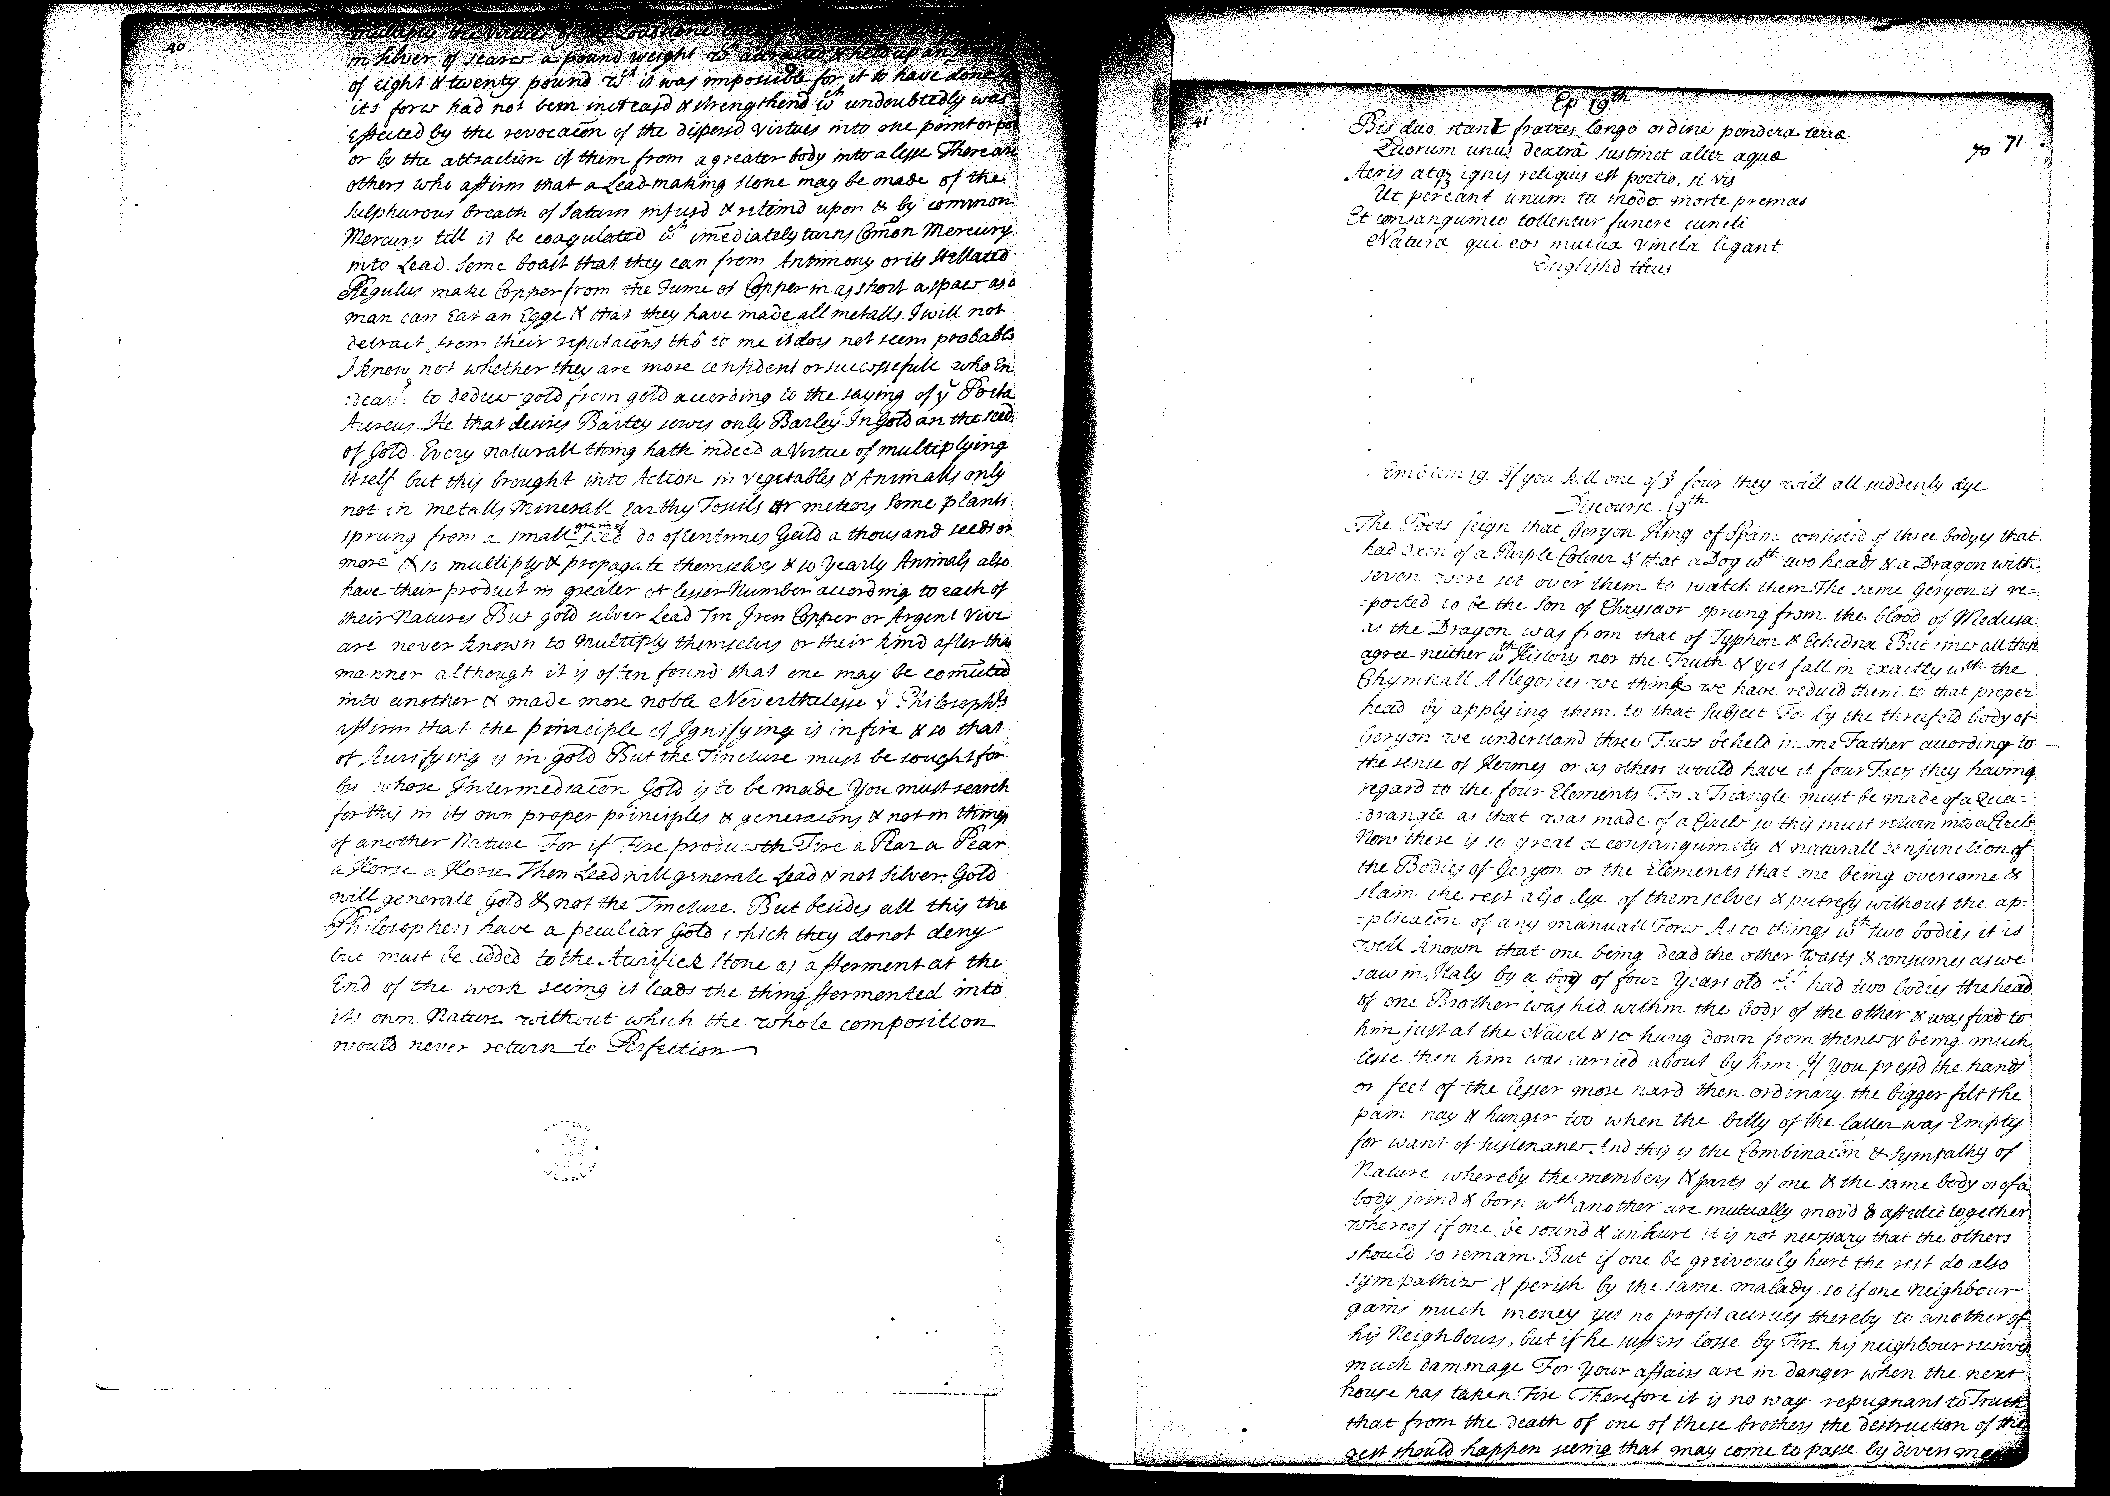 40
multiply the virtue of the Loadstone
in silver of scarce a pound weight wch
of eight & twenty pound wch it was impossible for it to have done
its force had not been increasd & strengthend wch undoubtedly was
effected by the revocacōn of the dispersd virtues into one point or
or by the attraction of them from a greater body into a lesse There are
others who affirm that a Lead-making stone may be made of the
sulphurous breath of Saturn infusd & reteind upon & by common
Mercury till it be coagulated wch im̄ediately turns Com̄on Mercury
into Lead. Some boast that they can from Antimony or its stellated
Regulus make Copper from the Fume of Copper in as short a space as a
man can Eat an Egge & that they have made all metalls. I will not
detract from their reputacōns thō to me it does not seem probable
I know not whether they are more confident or successefull who En
:deavr to deduce gold from gold according to the saying of ye Poeta
Aureus. He that desires Barley sowes only Barley In Gold are the seeds
of Gold. Every naturall thing hath indeed a Virtue of multiplying
itself but this brought into Action in Vegetables & Animalls only
not in metalls Mineralls Earthy Fossils or meteors Some plants
sprung from a small grain of seed do oftentimes Yeild a thousand seeds or
more & so multiply & propagate themselves & so Yearly Animals also
have their product in greater or lesser Number according to each of
their Natures But gold silver Lead Tin Iron Copper or Argent Vive
are never known to Multiply themselves or their kind after this
manner although it is often found that one may be com̄uted
into another & made more noble Neverthelesse ye Philosophrs
affirm that the principle of Ignifying is in fire & so that
of Aurifying is in gold But the Tincture must be sought for
by whose Intermediacōn Gold is to be made You must search
for this in its own proper principles & generacōns & not in things
of another Nature For if Fire produceth Fire a Pear a Pear
a Horse a Horse Then Lead will generate Lead & not Silver. Gold
will generate Gold & not the Tincture. But besides all this the
Philosophers have a peculiar Gold which they do not deny
but must be added to the Aurifick Stone as a fferment at the
End of the work seeing it leads the thing ffermented into
its own Nature without which the whole composition
would never return to Perfection
Ep 19th
41
70 71
Bis duo stant fratres longo ordine pondera terræ
Quorum unus dextrâ sustinet alter aquæ
Aeris atqz ignis reliquis est portio, si vis
Ut pereant unum tu modo morte premas
Et consanguineo tollentur funere cuncti
Natura qui eos mutua vincla ligant
Englishd thus
Emblem 19. If you kill one of ye four they will all suddenly dye
Discourse. 19th
The Poets feign that Geryon King of Spain consisted of three bodyes that
had Oxen of a Purple Colour & that a Dog wth two heads & a Dragon with
seven were set over them to watch them The same Geryon is re=
:ported to be the Son of Chrysaor sprung from the blood of Medusa
as the Dragon was from that of Typhon & Echidna But since all these
agree neither wth History nor the Truth & yet fall in exactly wth the
Chymicall Allegories we think we have reducd them to that proper
head by applying them to that Subject For by the threefold body of
Geryon we understand three Faces beheld in one Father according to
the sense of Hermes or as others would have it four Faces they having
regard to the four Elements For a Triangle must be made of a Qua=
:drangle as that was made of a Circle so this must return into a Circle
Now there is so great a consanguinity & naturall conjunction of
the Bodies of Geryon or the Elements that one being overcome &
slain the rest also dye of themselves & putrefy without the ap=
=plicacōn of any manuall Force As to things wth two bodies it is
well known that one being dead the other wasts & consumes as we
saw in Italy by a boy of four Years old yt had two bodies the head
of one Brother was hid within the body of the other & was fixd to
him just at the Navel & so hung down from thence & being much
lesse then him was carried about by him If you pressd the hands
or feet of the lesser more hard then ordinary the bigger felt the
pain nay & hunger too when the belly of the latter was Empty
for want of sustenance And this is the Combinacōn & Sympathy of
Nature whereby the members & parts of one & the same body or of a
body joind & born wth another are mutually movd & affected together
whereof if one be sound & unhurt it is not necessary that the others
should so remain But if one be greivously hurt the rest do also
sympathize & perish by the same malady so if one Neighbour
gains much money yet no profit accrues thereby to another of
his Neighbours, but if he suffers losse by Fire his neighbour receives
much dammage For Your affairs are in danger when the next
house has taken Fire Therefore it is no way repugnant to Truth
that from the death of one of these brothers the destruction of the
rest should happen seeing that may come to passe by divers